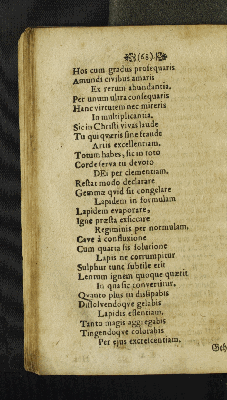 (63)
Hos cum gradus prosequaris
Amundi civibus amaris
Ex rerum abundantia,
Per unum ultra consequaris
Hanc virtutem nec mireris
In multiplicantia,
Sic in Christi vivas laude
Tu qui quæris sine fraude
Artis excellentiam.
Totum habes, sic in toto
Corde serva tu devoto
DEi per clementiam.
Restat modo declarare
Gemmæ quid sit congelare
Lapidem in formulam
Lapidem evaporare,
Igne præsta exsiccare
Regiminis per normulam.
Cave à confluxione
Cum quarta fis solutione
Lapis ne corrumpitur
Sulphur tunc subtile erit
Lentum ignem quoque quærit
In qua sic convertitur.
Quanto plus tu dissipabis
Dissolvendoque gelabis
Lapidis essentiam.
Tanto magis aggregabis
Tingendoque colorabis
Per ejus excellentiam.